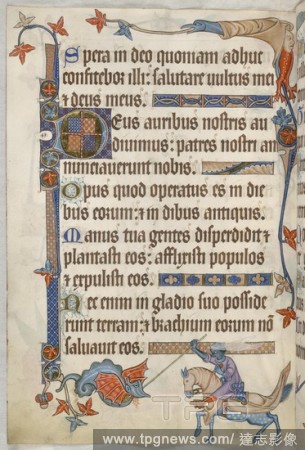 Spera in deo quoniam adhuc
confitebor illi: salutare uultus mei
⁊ deus meus.
Deus auribus nostris au
diuimus: patres nostri an
nunciauerunt nobis.
Opus quod operatus es in die
bus eorum: ⁊ in diebus antiquis.
Manus tua gentes disperdidit ⁊
plantasti eos: afflixisti populos
⁊ expulisti eos.
Nec enim in gladio suo posside
runt terram: ⁊ brachium eorum nō
saluauit eos.
TPG
www.tpgnews.com/ 達志影像